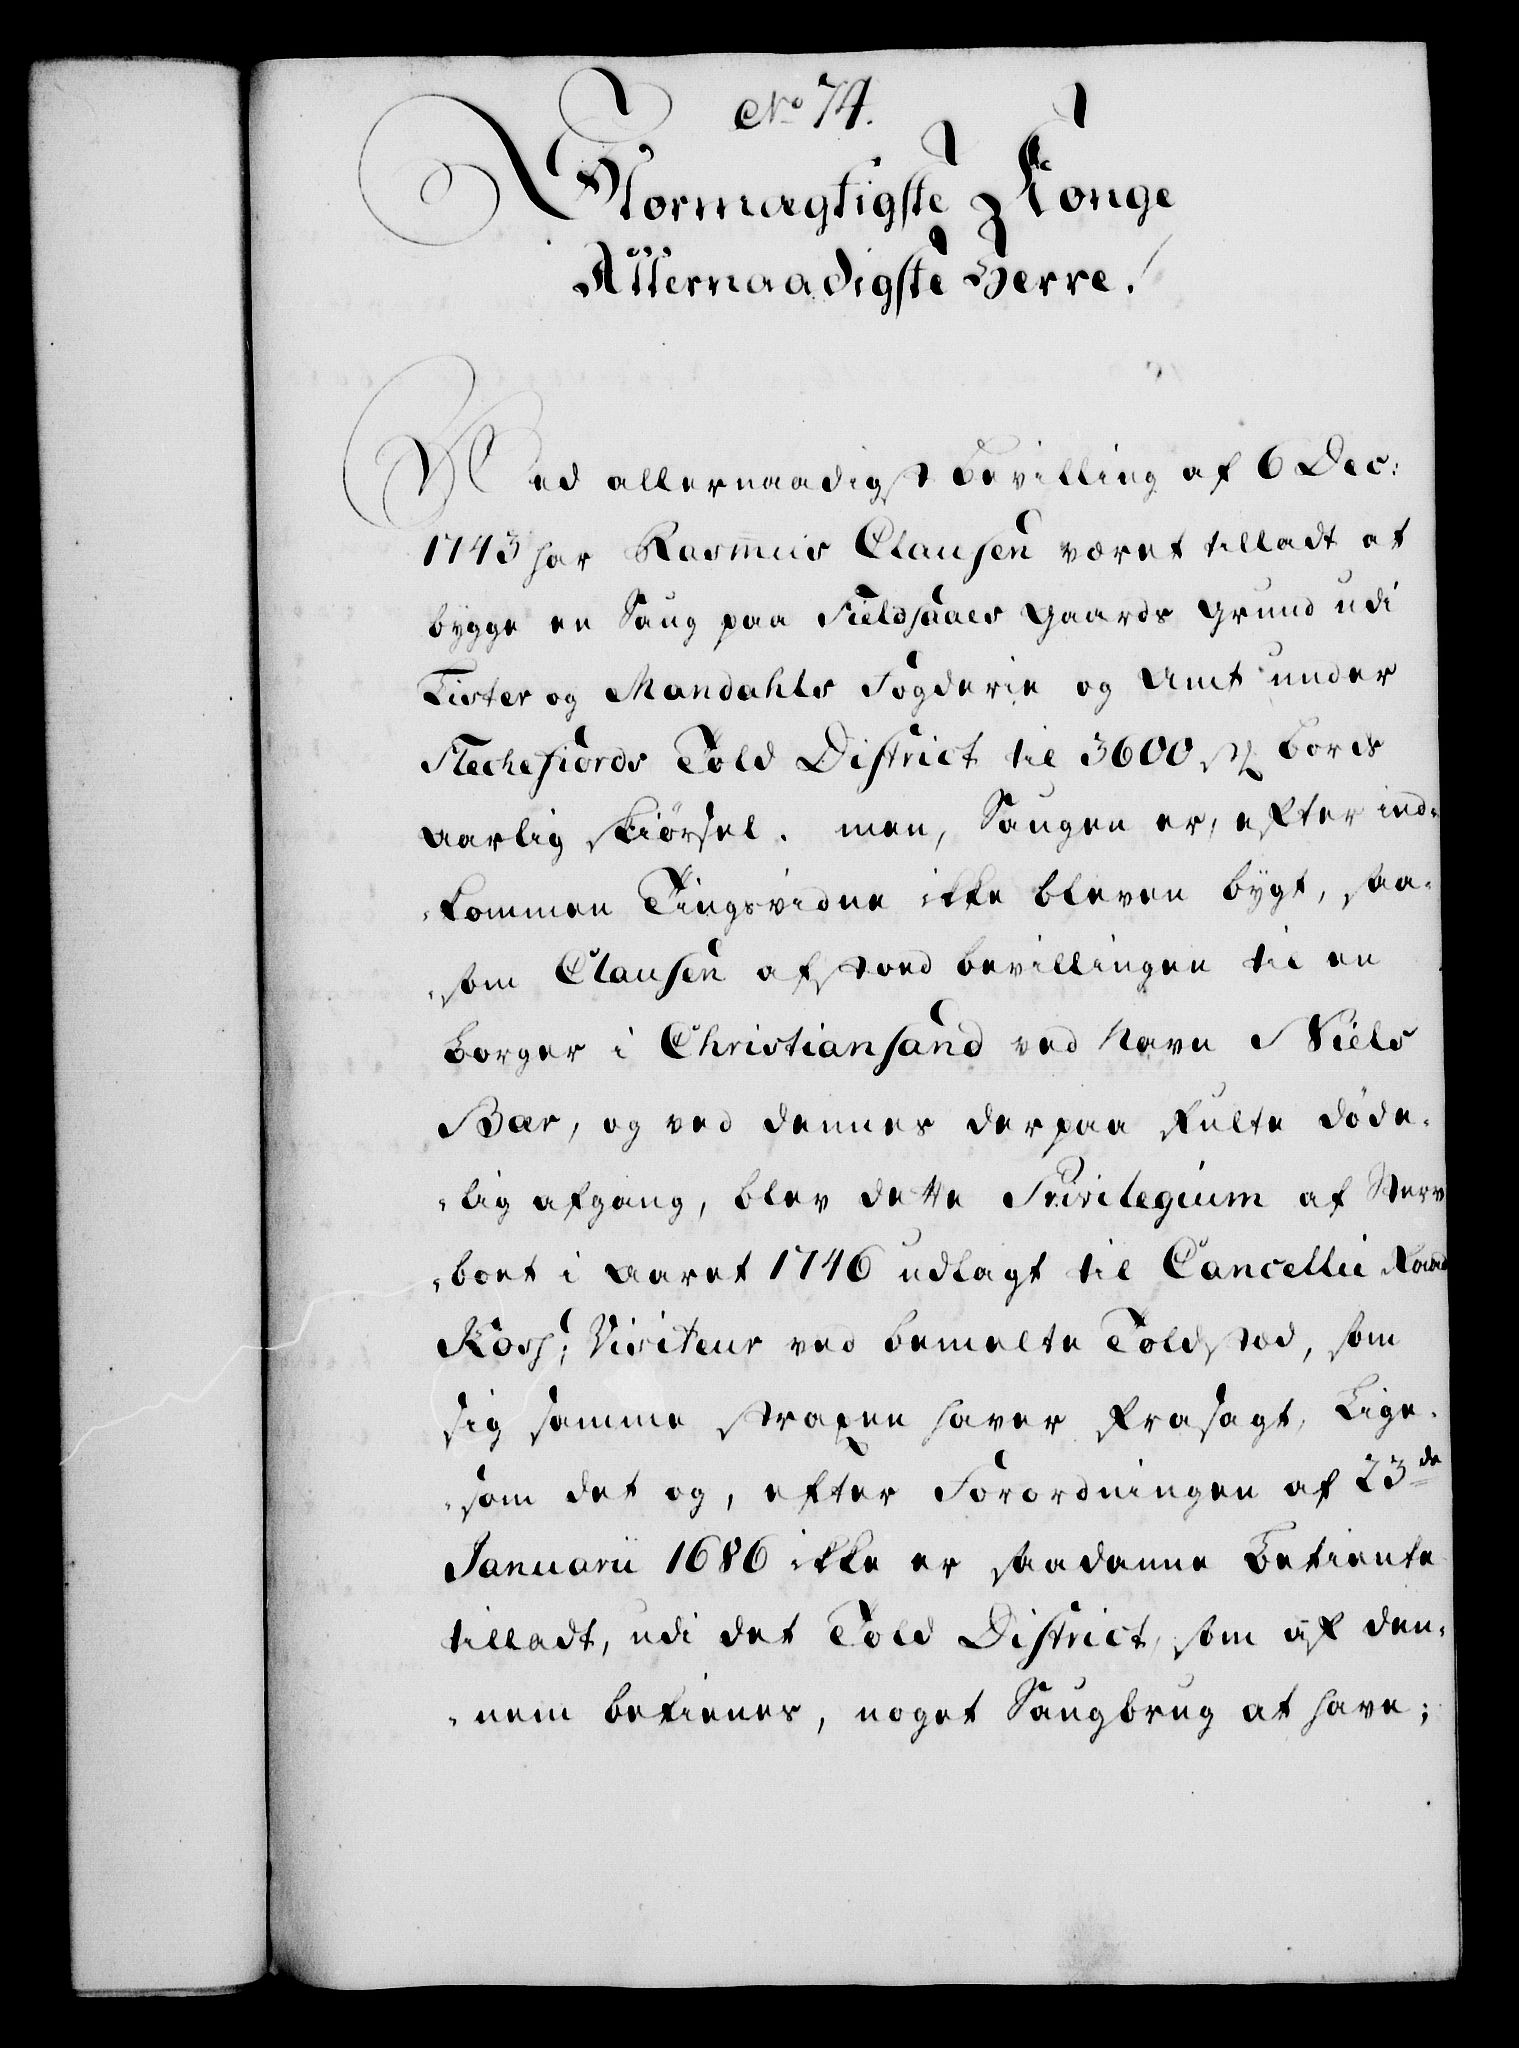 No 74.
Stormægtigste Konge
Allernaadigste Herre!
Ved allernaadigst bevilling af 6 Dec:
1743 har Rasmus Clausen været tilladt at
bygge en Saug paa Fieldsaaes Gaards Grund udi
Lister og Mandahls Fogderie og Amt under
Flechefiords Told District til 3600 st bords
aarlig skiørsel. men, Saugen er, efter ind-
-kommen Tingsvidne ikke bleven bygt, saa-
-som Clausen afstoed bevillingen til en
Borger i Christiansand ved Navn Niels
Bær, og ved dennes derpaa fulte døde-
-lig afgang, blev dette Privilegium af Sterv
-boet i Aaret 1746 udlagt til Cancellie Raad
Visiteur ved bemelte Toldstæd, som
sig samme straxen haver frasagt, Lige-
-som det og, efter Forordningen af 23de
Januarii 1686 ikke er saadanne Betiente
tilladt, udi det Told District, som af den-
-nem betienes, noget Saugbrug at have;